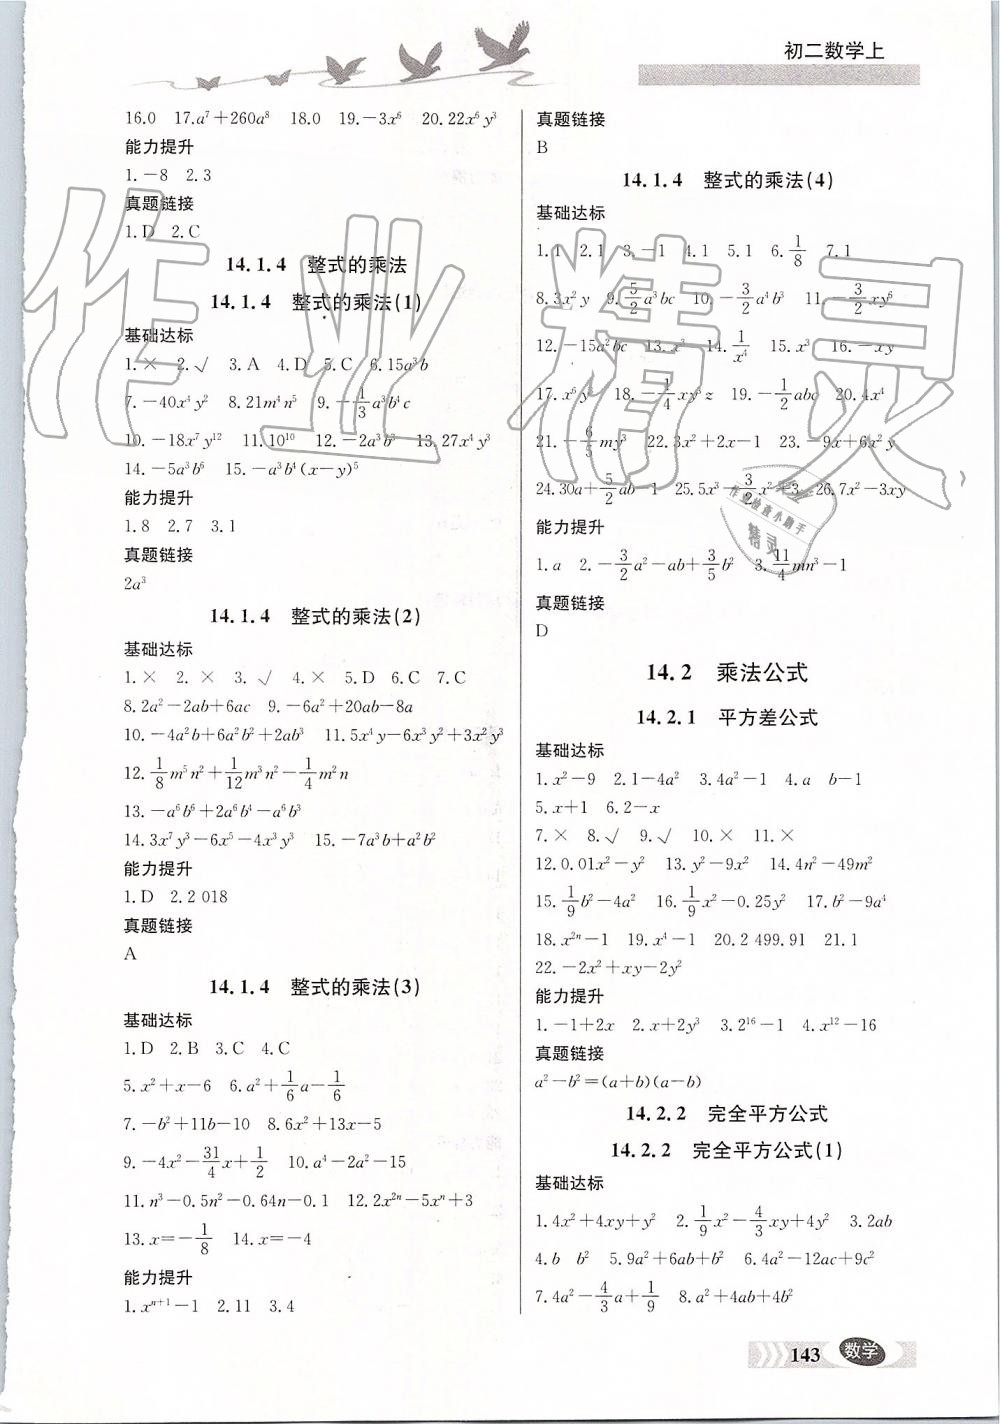 初二数学上
16.0 17.a⁷+260a⁸ 18.0 19.-3x⁶ 20.22x⁶y³
能力提升
1.-8 2.3
真题链接
1.D 2.C
14.1.4 整式的乘法
14.1.4 整式的乘法(1)
基础达标
1.× 2.√ 3.A 4.D 5.C 6.15a³b
7.-40x⁴y² 8.21m⁴n⁵ 9.-1/3a³b⁴c
10.-18x⁷y¹² 11.10¹⁰ 12.-2a³b³ 13.27x⁴y³
14.-5a³b⁶ 15.-a³b⁴(x-y)⁵
能力提升
1.8 2.7 3.1
真题链接
2a³
14.1.4 整式的乘法(2)
基础达标
1.× 2.× 3.√ 4.× 5.D 6.C 7.C
8.2a²-2ab+6ac 9.-6a²+20ab-8a
10.-4a²b+6a²b²+2ab³ 11.5x⁴y-6x³y²+3x²y³
12.1/8m⁵n²+1/12m³n²-1/4m²n
13.-a⁶b⁶+2a⁶b⁴-a⁶b³
14.3x⁷y³-6x⁵-4x³y³ 15.-7a³b+a²b²
能力提升
1.D 2.2 018
真题链接
A
14.1.4 整式的乘法(3)
基础达标
1.D 2.B 3.C 4.C
5.x²+x-6 6.a²+1/6a-1/6
7.-b²+11b-10 8.6x²+13x-5
9.-4x²-31/4x+1/2 10.a⁴-2a²-15
11.n³-0.5n²-0.64n-0.1 12.2x²ⁿ-5xⁿ+3
13.x=-1/8 14.x=-4
能力提升
1.xⁿ⁺¹-1 2.11 3.4
真题链接
B
14.1.4 整式的乘法(4)
基础达标
1.1 2.1 3.-1 4.1 5.1 6.1/8 7.1
8.3x²y 9.5/2a³bc 10.-3/2a⁴b³ 11.-3/2xy⁶
12.-15a²bc 13.x² 14.1/x⁴ 15.x³ 16.-xy
17.x⁶y³ 18.-1/4xy³z 19.-1/2abc 20.4x⁴
21.-6/5my³ 22.3x²+2x-1 23.-9x+6x²y
24.30a+5/2ab-1 25.5x³-3/2x²+3 26.7x²-3xy
能力提升
1.a 2.-3/2a²-ab+3/5b² 3.11/4mn³-1
真题链接
D
14.2 乘法公式
14.2.1 平方差公式
基础达标
1.x²-9 2.1-4a² 3.4a²-1 4.a b-1
5.x+1 6.2-x
7.× 8.√ 9.√ 10.× 11.×
12.0.01x²-y² 13.y²-9x² 14.4n²-49m²
15.1/9b²-4a² 16.1/9x²-0.25y² 17.b²-9a⁴
18.x²ⁿ-1 19.x⁴-1 20.2 499.91 21.1
22.-2x²+xy-2y²
能力提升
1.-1+2x 2.x+2y³ 3.2¹⁶-1 4.x¹²-16
真题链接
a²-b²=(a+b)(a-b)
14.2.2 完全平方公式
14.2.2 完全平方公式(1)
基础达标
1.4x²+4xy+y² 2.1/9x²-4/3xy+4y² 3.2ab
4.b b² 5.9a²+6ab+b² 6.4a²-12ac+9c²
7.4a²-4/3a+1/9 8.a²+4ab+4b²
143 数学
作业精灵
作业检查小助手
精灵